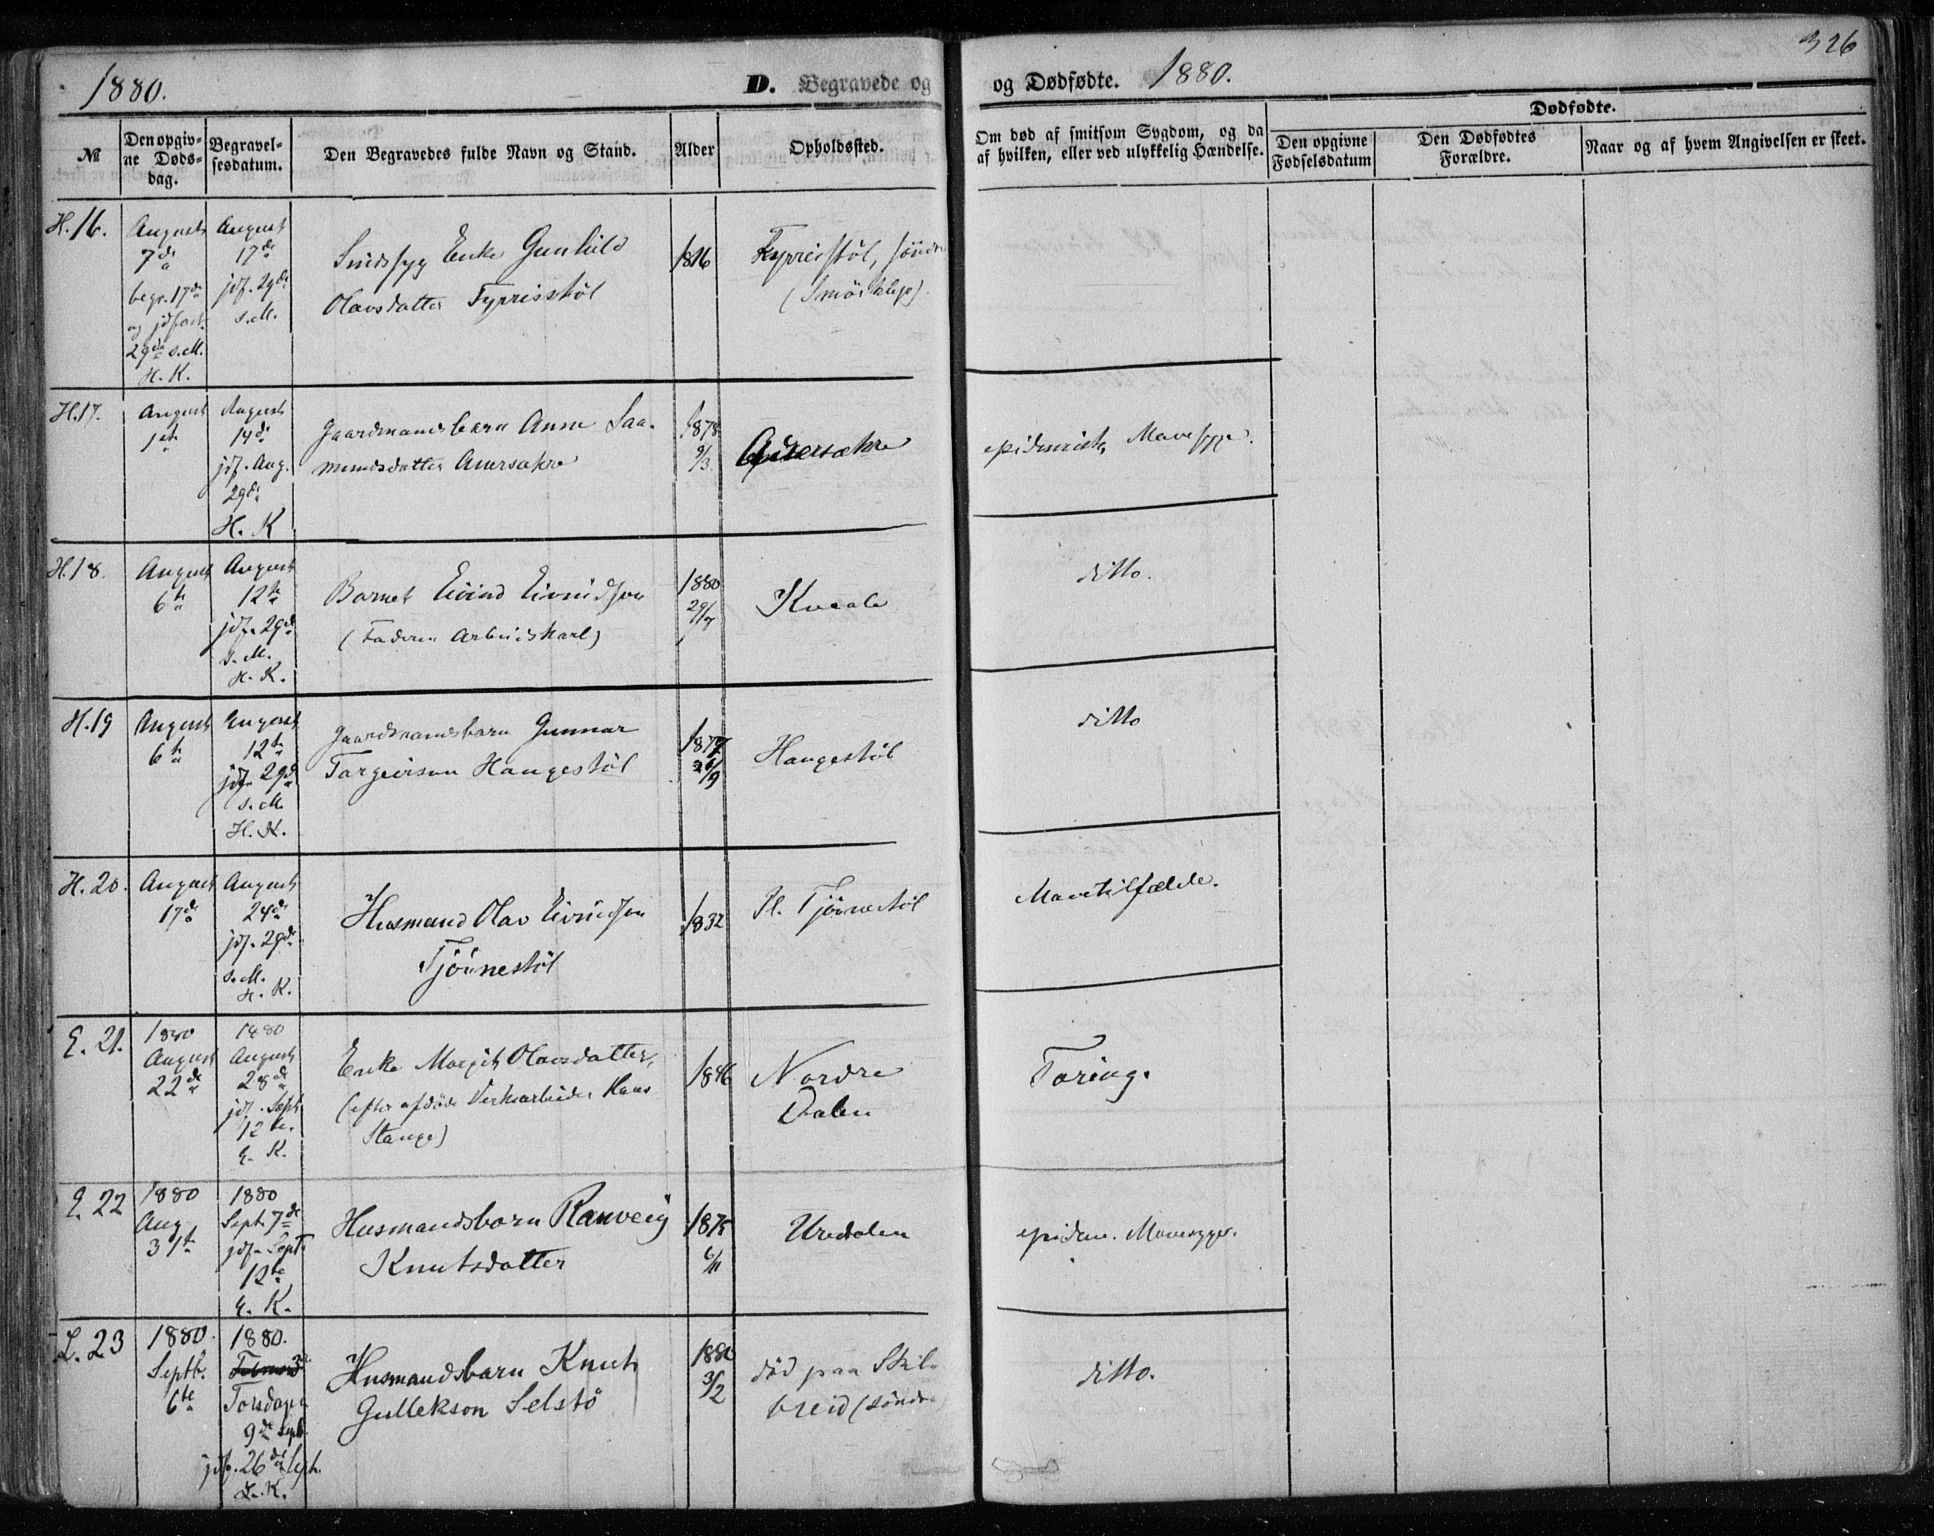 1880.
D. Begravede og
og Dødfødte. 1880.
326
№
Den opgivne Dødsdag.
Begravelsesdatum.
Den Begravedes fulde Navn og Stand.
Alder
Opholdssted.
Om død af smitsom Sygdom, og da
af hvilken, eller ved ulykkelig Hændelse.
Dødfødte.
Den opgivne
Fødselsdatum
Den Dødfødtes
Forældre.
Naar og af hvem Angivelsen er skeet.
H. 16.
August
7de
begr. 17de
og jdfæst.
29de s. M.
H. K.
August
17de
jdf. 29de
s. M.
Sindssyg Enke Gunhild
Olavsdatter Fyrrisstøl
1816
Fyreistøl, søndre
(Smørklep).
H. 17.
August
1ste
August
14de
jdf. Aug.
29de
H. K
Gaardmandsbarn Anne Saa-
mundsdatter Anersakre
1878
9/3
epidemisk Mavesyge.
H. 18.
August
6te
August
12te
jdf. 29de
s. M.
H. K.
Barnet Eivind Eivindson
(Faderen Arbeidskarl)
1880
29/7
Kvaale
ditto.
H. 19
August
6te
August
12te
jdf. 29de
s. M.
H. K.
Gaardmandsbarn Gunnar
Targeirson Haugestøl
1877
/9
Haugestøl
ditto
H. 20.
August
17de
August
24de
jdf. 29de
s. M.
H. K.
Husmand Olav Eivindson
Tjønnestøl
1832
Pl. Tjønnestøl
Mavetilfælde.
E. 21.
1880
August
22de
1880
August
28de
jdf. Sept.
12te.
E. K.
Enke Margit Olavsdatter,
(efter afdøde Verkarbeider Hans
Stange)
1846
Nordre
Dalen
Tæring.
E. 22
1880
Aug
31te
1880
Sept. 7de
jdf. Sept.
12te
E. K.
Husmandsbarn Ranveig
Knutsdatter
1875
6/11
Uredalen
epidem. Mavesyge.
L. 23
1880.
Septb.
6te
1880.
Torsdag
9de Sept.
jdf. 26de Sept.
L. K.
Husmandsbarn Knut
Gullekson Selstø
1880
3/2
død paa Skil-
breid (søndre
ditto.